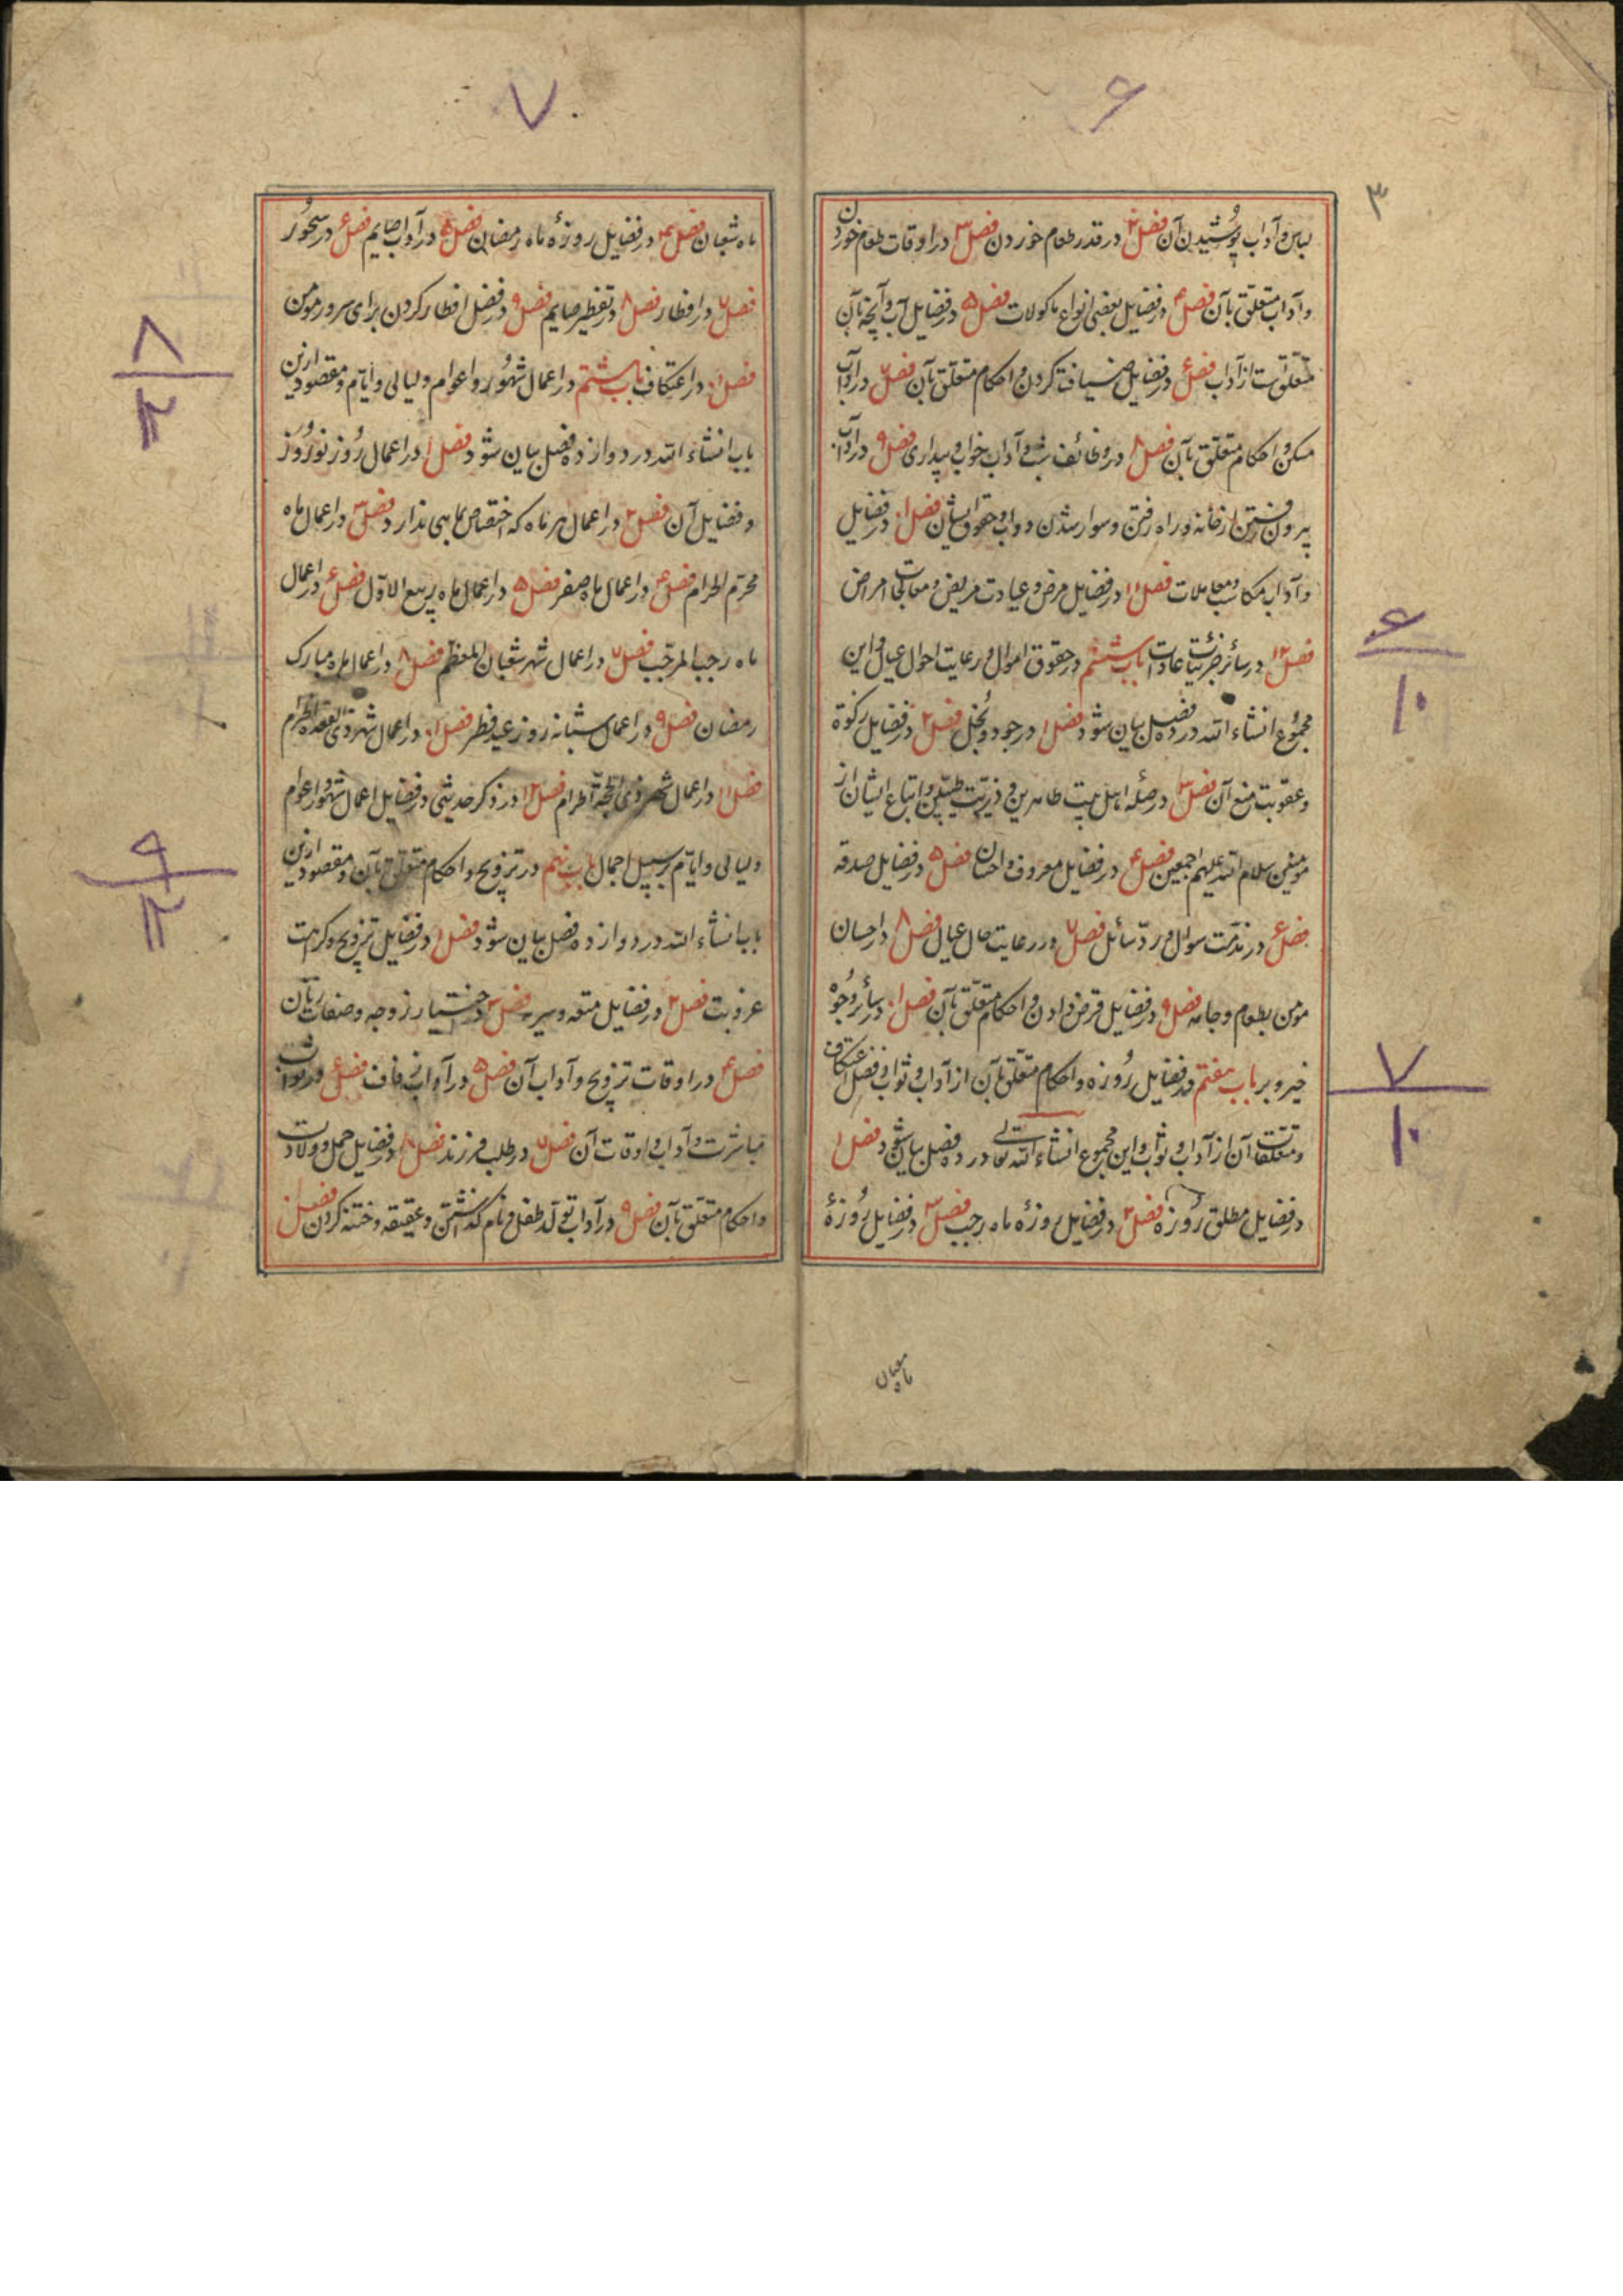 ۶
۳
لباس و آداب پوشیدن آن فصل ۲ در قدر طعام خوردن فصل ۳ در اوقات طعام خوردن
و آداب متعلق بآن فصل ۴ در فضایل بعضی انواع ماکولات فصل ۵ در فضایل آب و آنچه بآن
متعلق ست از آداب فصل ۶ در فضایل ضیافت کردن و احکام متعلق بآن فصل ۷ در آداب
مسکن و احکام متعلق بآن فصل ۸ در وظائف شب و آداب خواب و بیداری فصل ۹ در آداب
بیرون رفتن از خانه و راه رفتن و سوار شدن دواب و حقوق ایشان فصل ۱۰ در فضایل
و آداب مکاسب و معاملات فصل ۱۱ در فضایل مرض و عیادت مریض و معالجات امراض
فصل ۱۲ در سائر جزئیات عادات باب ششم در حقوق اموال و رعایت احوال عیال و این
مجموع انشاء الله در ده فصل بیان شود فصل ۱ در جود و بخل فصل ۲ در فضایل زکوة
و عقوبت منع آن فصل ۳ در صله اهل بیت طاهرین و ذریت طیبین و اتباع ایشان از
مومنین سلام الله علیهم اجمعین فصل ۴ در فضایل معروف و احسان فصل ۵ در فضایل صدقه
فصل ۶ در مذمت سوال و رد سائل فصل ۷ در رعایت حال عیال فصل ۸ در احسان
مومن بطعام و جامه فصل ۹ در فضایل قرض دادن و احکام متعلق بآن فصل ۱۰ در سائر وجوه
خیر و بر باب هفتم در فضایل روزه و احکام متعلق بآن از آداب و ثواب و فضل اعتکاف
و متعلقات آن از آداب و ثواب و این مجموع انشاء الله تعالی در ده فصل بیان شود فصل ۱
در فضایل مطلق روزه فصل ۲ در فضایل روزهٔ ماه رجب فصل ۳ در فضایل روزهٔ
۶
۱۰
۷
۱۰
ماه شعبان
۷
ماه شعبان فصل ۴ در فضایل روزهٔ ماه رمضان فصل ۵ در آداب صایم فصل ۶ در سحور
فصل ۷ در افطار فصل ۸ در تفطیر صایم فصل ۹ در فضل افطار کردن برای سرور مومن
فصل ۱۰ در اعتکاف باب هشتم در اعمال شهور و اعوام و لیالی و ایام و مقصود ازین
باب انشاء الله در دوازده فصل بیان شود فصل ۱ در اعمال روز نوروز
و فضایل آن فصل ۲ در اعمال هر ماه که اختصاص بماهی ندارد فصل ۳ در اعمال ماه
محرم الحرام فصل ۴ در اعمال ماه صفر فصل ۵ در اعمال ماه ربیع الاول فصل ۶ در اعمال
ماه رجب المرجب فصل ۷ در اعمال شهر شعبان المعظم فصل ۸ در اعمال ماه مبارک
رمضان فصل ۹ در اعمال شبانه روز عید فطر فصل ۱۰ در اعمال شهر ذی القعده الحرام
فصل ۱۱ در اعمال شهر ذی الحجة الحرام فصل ۱۲ در ذکر حدیثی در فضایل اعمال شهور و اعوام
و لیالی و ایام بر سبیل اجمال باب نهم در تزویج و احکام متعلق بآن و مقصود ازین
باب انشاء الله در دوازده فصل بیان شود فصل ۱ در فضایل تزویج و کراهت
عزوبت فصل ۲ در فضایل متعه و سیر فصل ۳ در اختیار زوجه و صفات زنان
فصل ۴ در اوقات تزویج و آداب آن فصل ۵ در آداب زفاف فصل ۶ در ثواب
مباشرت و آداب و اوقات آن فصل ۷ در طلب فرزند فصل ۸ در فضایل حمل و ولادت
و احکام متعلق بآن فصل ۹ در آداب تولد طفل و نام گذاشتن و عقیقه و ختنه کردن فصل ۱۰
۸
۱۲
۹
۱۲